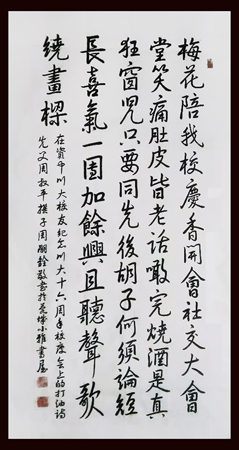 梅花陪我校慶香開會社交大會
堂笑痛肚皮皆老話瞰完燒酒是真
狂窗兒只要同先後胡子何須論短
長喜氣一團加餘興且聽聲歌
繞畫樑
在資中川大校友紀念川大十六周年校慶會上的打油詩
先父周叔平撰子周嗣銓敬書於
小雅書屋